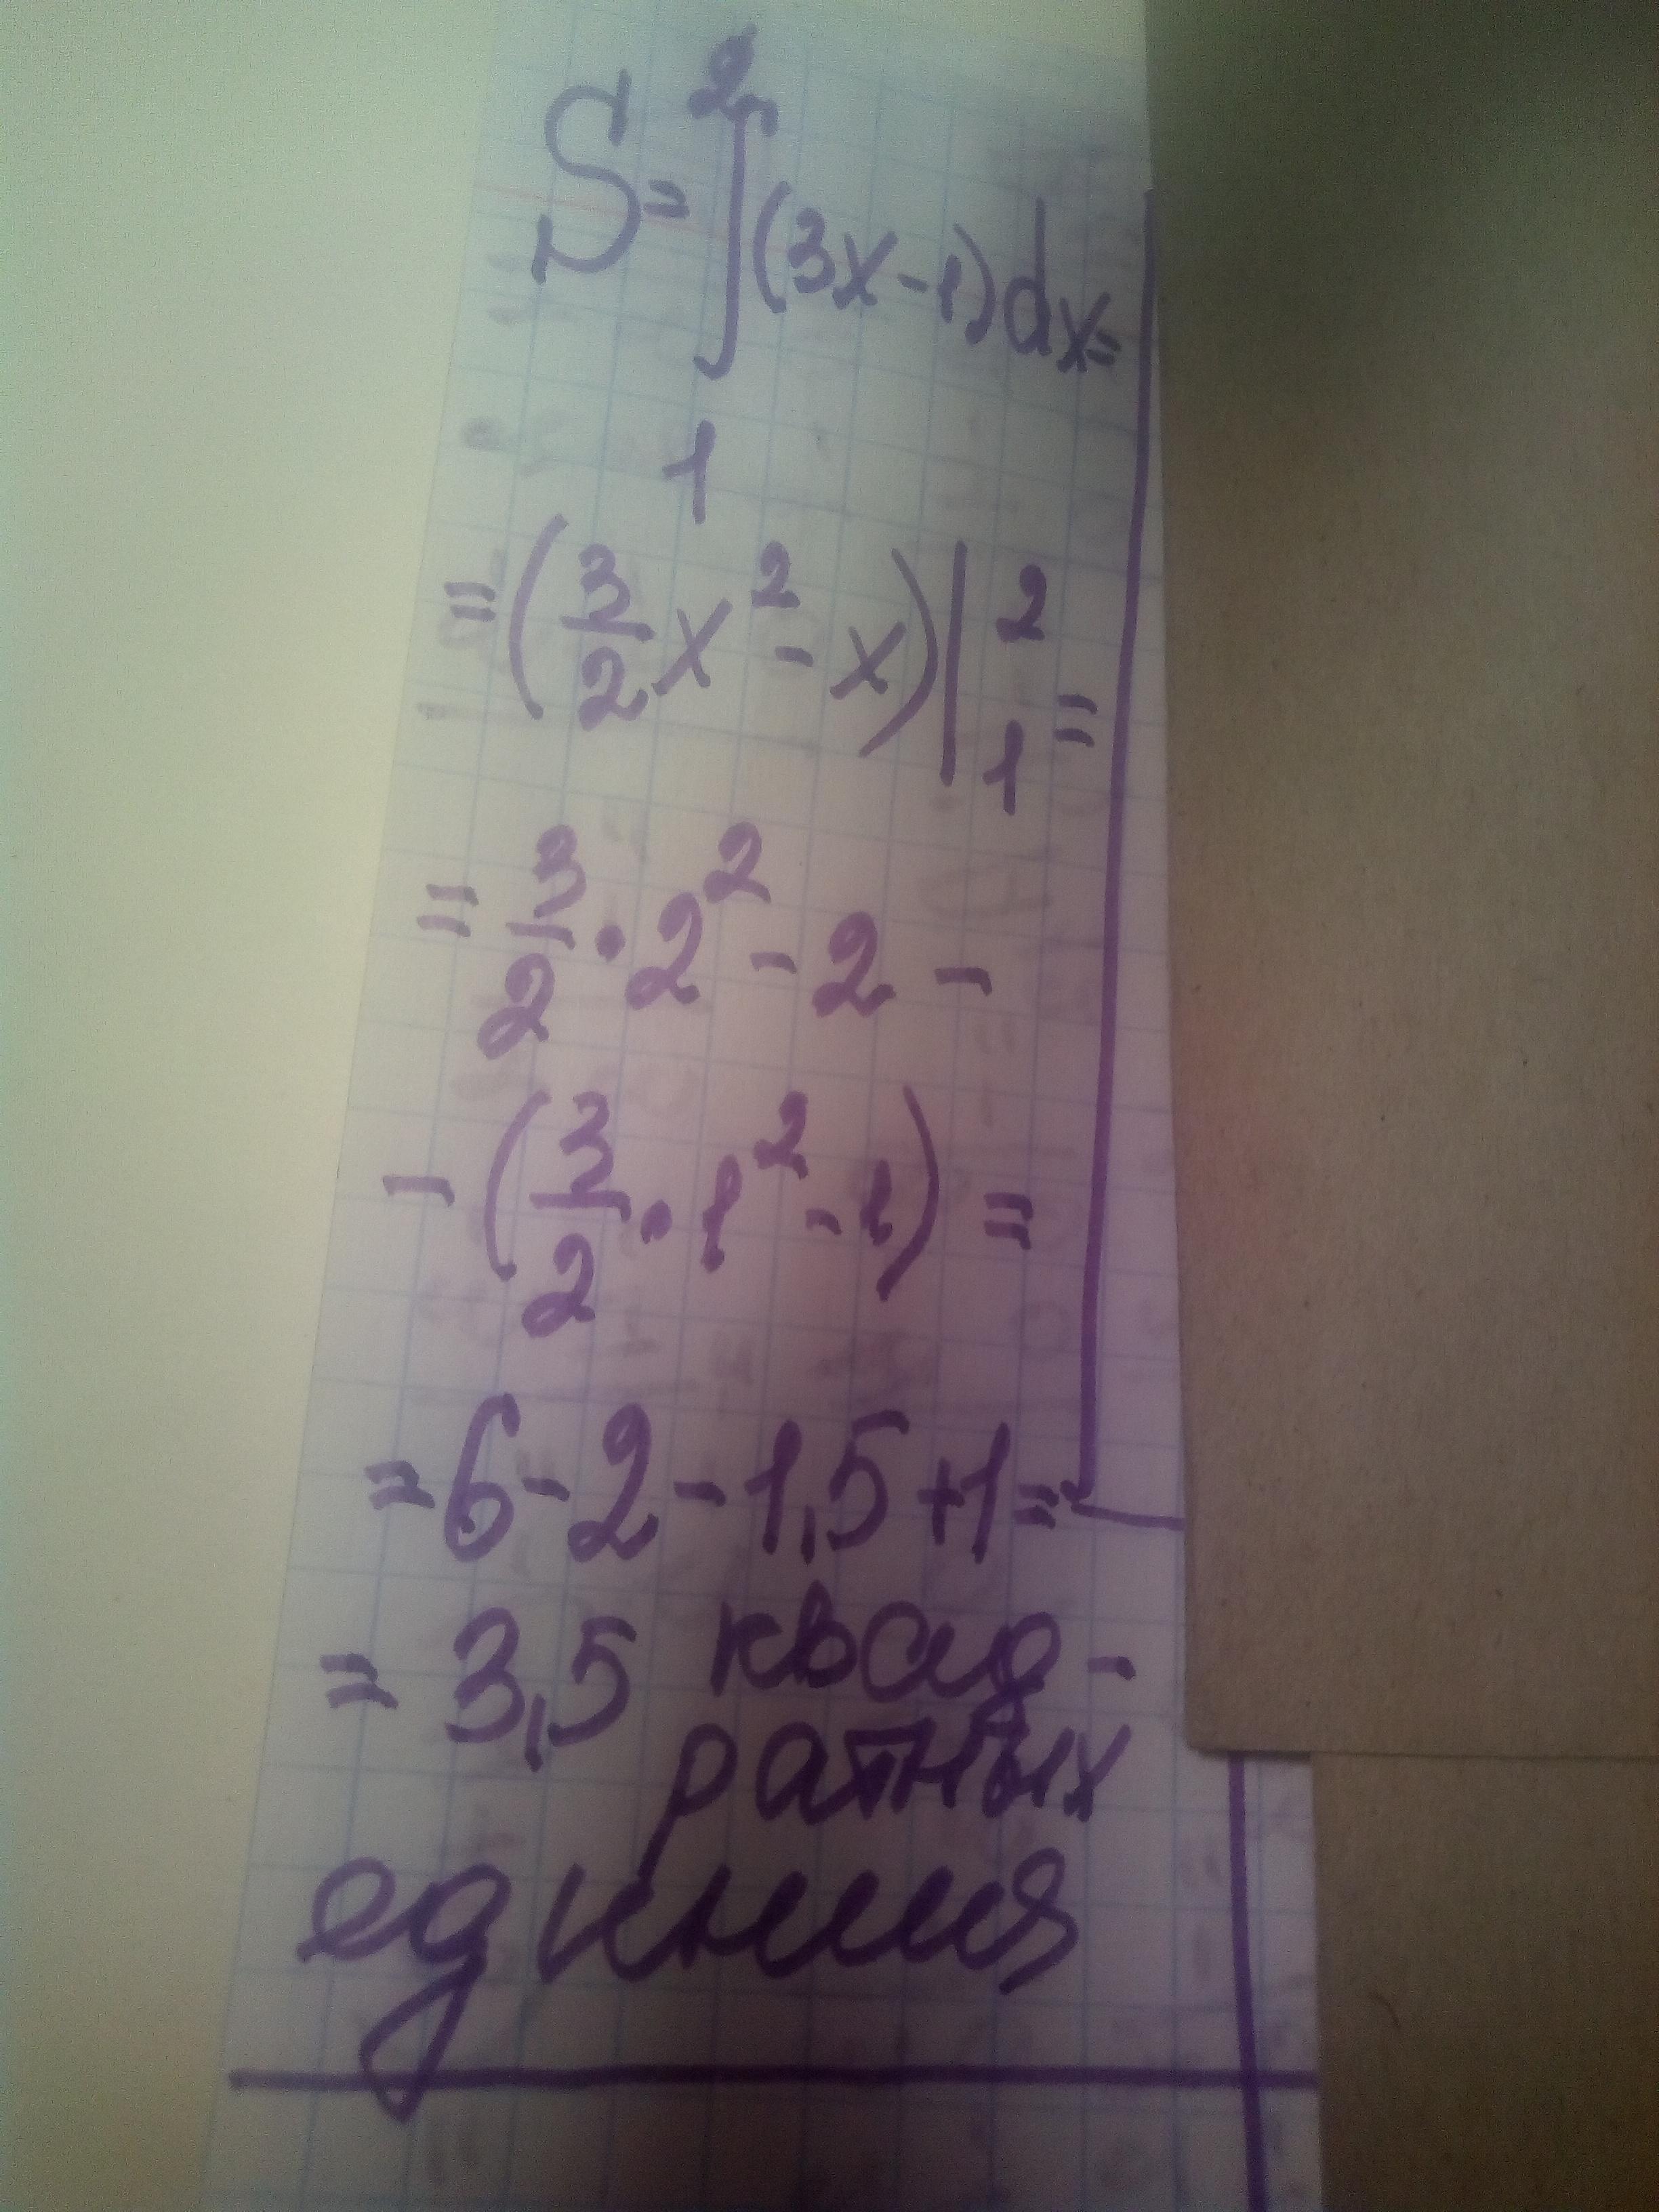 S = ∫₁² (3x - 1) dx =
= (3/2 x² - x) |₁² =
= 3/2 · 2² - 2 -
- (3/2 · 1² - 1) =
= 6 - 2 - 1,5 + 1 =
= 3,5 квад-
ратных
единиц